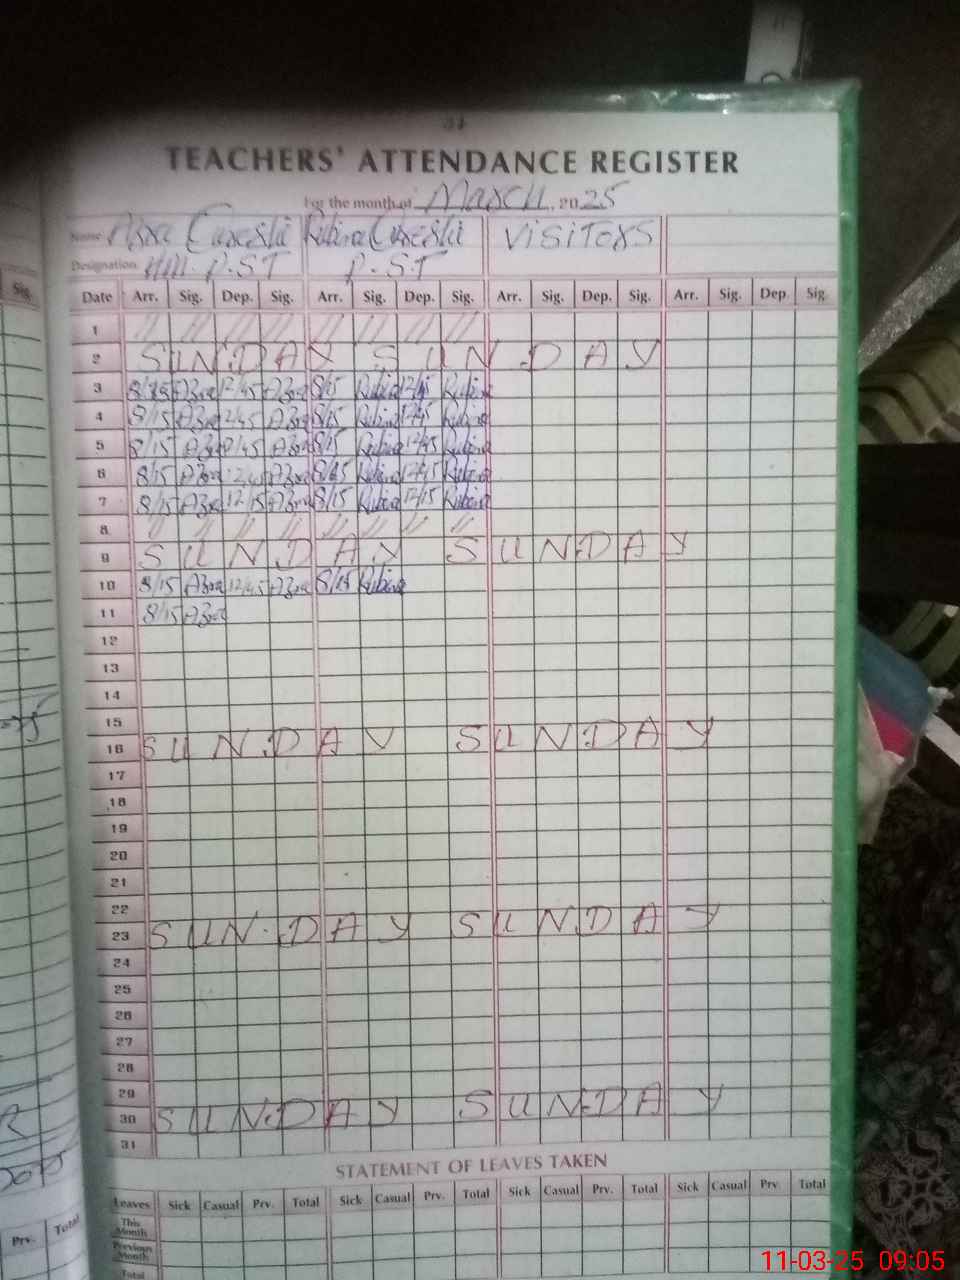 31
TEACHERS' ATTENDANCE REGISTER
For the month of March, 2025
Name Azra Qureshi Rubina Qureshi VISITORS
Designation HM. P.S.T P.S.T
Date Arr. Sig. Dep. Sig. Arr. Sig. Dep. Sig. Arr. Sig. Dep. Sig. Arr. Sig. Dep. Sig.
1 // // // // // // // //
2 SUNDAY SUNDAY
3 8/15 Azra 12/45 Azra 8/15 Rubina 12/45 Rubina
4 8/15 Azra 12/45 Azra 8/15 Rubina 12/45 Rubina
5 8/15 Azra 12/45 Azra 8/15 Rubina 12/45 Rubina
6 8/15 Azra 12/45 Azra 8/15 Rubina 12/45 Rubina
7 8/15 Azra 12/15 Azra 8/15 Rubina 12/15 Rubina
8 // // // // // // //
9 SUNDAY SUNDAY
10 8/15 Azra 12/45 Azra 8/15 Rubina
11 8/15 Azra
12
13
14
15
16 SUNDAY SUNDAY
17
18
19
20
21
22
23 SUN.DAY SUNDAY
24
25
26
27
28
29
30 SUNDAY SUNDAY
31
STATEMENT OF LEAVES TAKEN
Leaves Sick Casual Prv. Total Sick Casual Prv. Total Sick Casual Prv. Total Sick Casual Prv. Total
This Month
Previous Month
Total
Sig.
Prv. Total
11-03-25 09:05